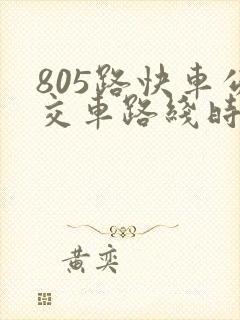 805路快車公
交車路綫時
黃奕